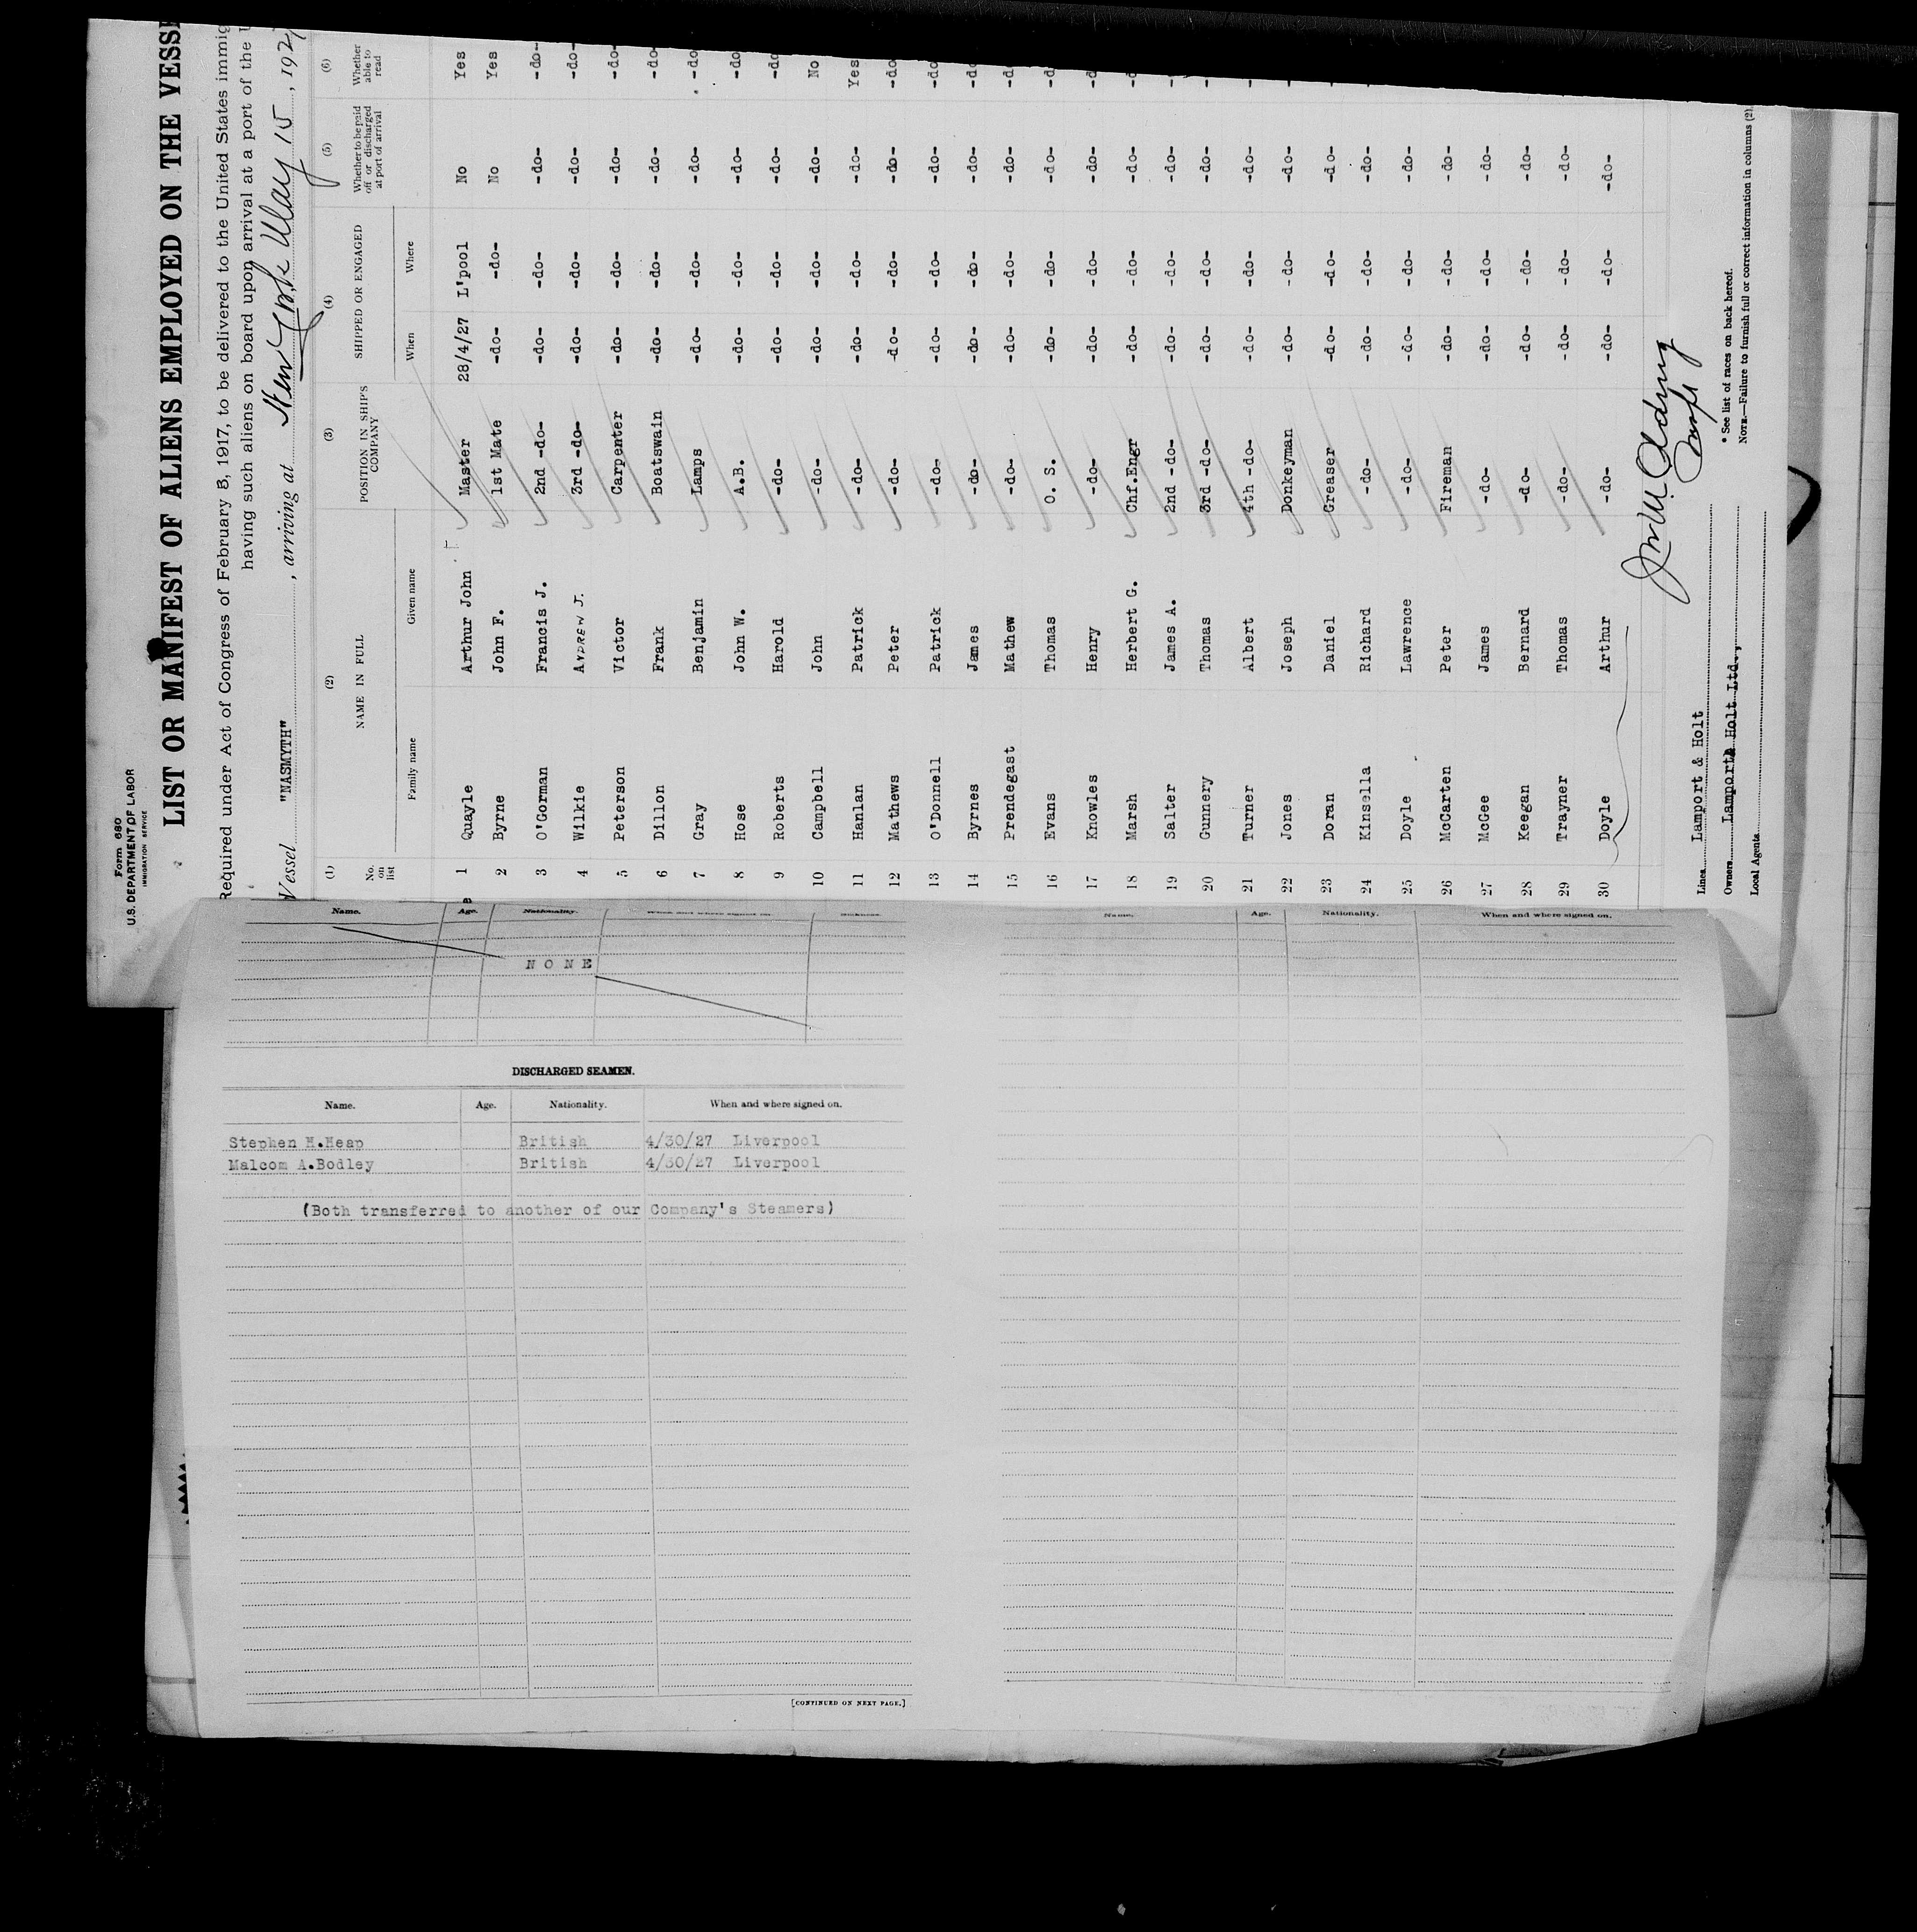 Form 680
U.S. DEPARTMENT OF LABOR
IMMIGRATION SERVICE
LIST OR MANIFEST OF ALIENS EMPLOYED ON THE VESSE
Required under Act of Congress of February 5, 1917, to be delivered to the United States immig
having such aliens on board upon arrival at a port of the U
Vessel "NASMYTH", arriving at New York May 15, 1927
(1) (2) (3) (4) (5) (6)
No. on list NAME IN FULL POSITION IN SHIP'S COMPANY SHIPPED OR ENGAGED Whether to be paid off or discharged at port of arrival Whether able to read
Family name Given name When Where
1 Quayle Arthur John Master 28/4/27 L'pool No Yes
2 Byrne John F. 1st Mate -do- -do- No Yes
3 O'Gorman Francis J. 2nd -do- -do- -do- -do- -do-
4 Wilkie ANDREW J. 3rd -do- -do- -do- -do- -do-
5 Peterson Victor Carpenter -do- -do- -do- -do-
6 Dillon Frank Boatswain -do- -do- -do- -do
7 Gray Benjamin Lamps -do- -do- -do- -do
8 Hose John W. A.B. -do- -do- -do- -do
9 Roberts Harold -do- -do- -do- -do- -do
10 Campbell John -do- -do- -do- -do- No
11 Hanlan Patrick -do- -do- -do- -do- Yes
12 Mathews Peter -do- -do- -do- -do- -do
13 O'Donnell Patrick -do- -do- -do- -do- -do
14 Byrnes James -do- -do- -do- -do- -do
15 Prendegast Mathew -do- -do- -do- -do- -d
16 Evans Thomas O. S. -do- -do- -do- -d
17 Knowles Henry -do- -do- -do- -do- -d
18 Marsh Herbert G. Chf.Engr -do- -do- -do- -d
19 Salter James A. 2nd -do- -do- -do- -do-
20 Gunnery Thomas 3rd -do- -do- -do- -do-
21 Turner Albert 4th -do- -do- -do- -do-
22 Jones Joseph Donkeyman -do- -do- -do-
23 Doran Daniel Greaser -do- -do- -do-
24 Kinsella Richard -do- -do- -do- -do-
25 Doyle Lawrence -do- -do- -do- -do-
26 McCarten Peter Fireman -do- -do- -do-
27 McGee James -do- -do- -do- -do-
28 Keegan Bernard -do- -do- -do- -do-
29 Trayner Thomas -do- -do- -do- -do-
30 Doyle Arthur -do- -do- -do- -do-
Lines Lamport & Holt
Owners Lamport & Holt Ltd.,
Local Agents
* See list of races on back hereof.
NOTE.—Failure to furnish full or correct information in columns (2),
Name. Age. Nationality. When and where signed on. Sickness.
NONE
DISCHARGED SEAMEN.
Name. Age. Nationality. When and where signed on.
Stephen H.Heap British 4/30/27 Liverpool
Malcom A.Bodley British 4/30/27 Liverpool
(Both transferred to another of our Company's Steamers)
[CONTINUED ON NEXT PAGE.]
Name. Age. Nationality. When and where signed on.